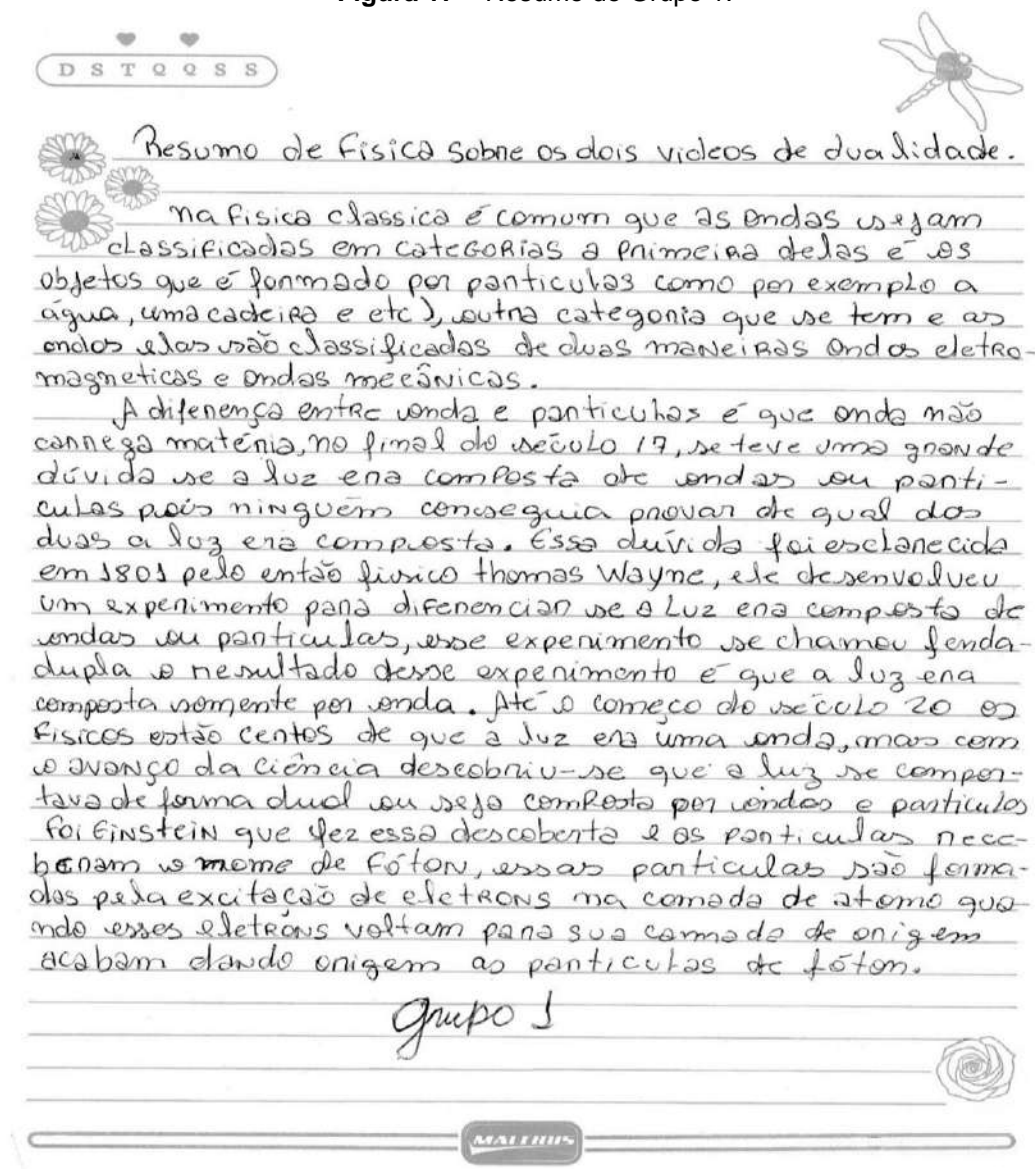 D S T Q Q S S
Resumo de Fisica sobre os dois videos de dualidade.
na fisica classica é comum que as ondas sejam
classificadas em categorias a primeira delas é os
objetos que é formado por particulas como por exemplo a
água, uma cadeira e etc), outra categoria que se tem e as
ondas elas são classificadas de duas maneiras ondas eletro-
magneticas e ondas mecânicas.
A diferença entre onda e particulas é que onda não
carrega matéria, no final do século 17, se teve uma grande
dúvida se a luz era composta de ondas ou parti-
culas pois ninguém conseguia provar de qual das
duas a luz era composta. Essa duvida foi esclarecida
em 1801 pelo então fisico thomas Wayne, ele desenvolveu
um experimento para diferenciar se a luz era composta de
ondas ou particulas, esse experimento se chamou fenda-
dupla o resultado desse experimento é que a luz era
composta somente por onda. Até o começo do século 20 os
fisicos estão certos de que a luz era uma onda, mas com
o avanço da ciência descobriu-se que a luz se compor-
tava de forma dual ou seja composta por ondas e particulas
foi Einstein que fez essa descoberta e as particulas rece-
beram o nome de fóton, essas particulas são forma-
das pela excitação de eletrons na camada de atomo qua-
ndo esses eletrons voltam para sua camada de origem
acabam dando origem as particulas de fóton.
Grupo 1